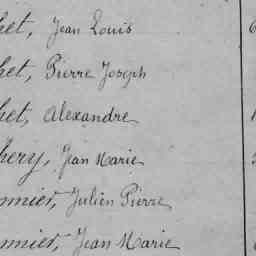 het, Jean Louis
het, Pierre Joseph
het, Alexandre
hery, Jean Marie
nnier, Julien Pierre
nnier, Jean Marie